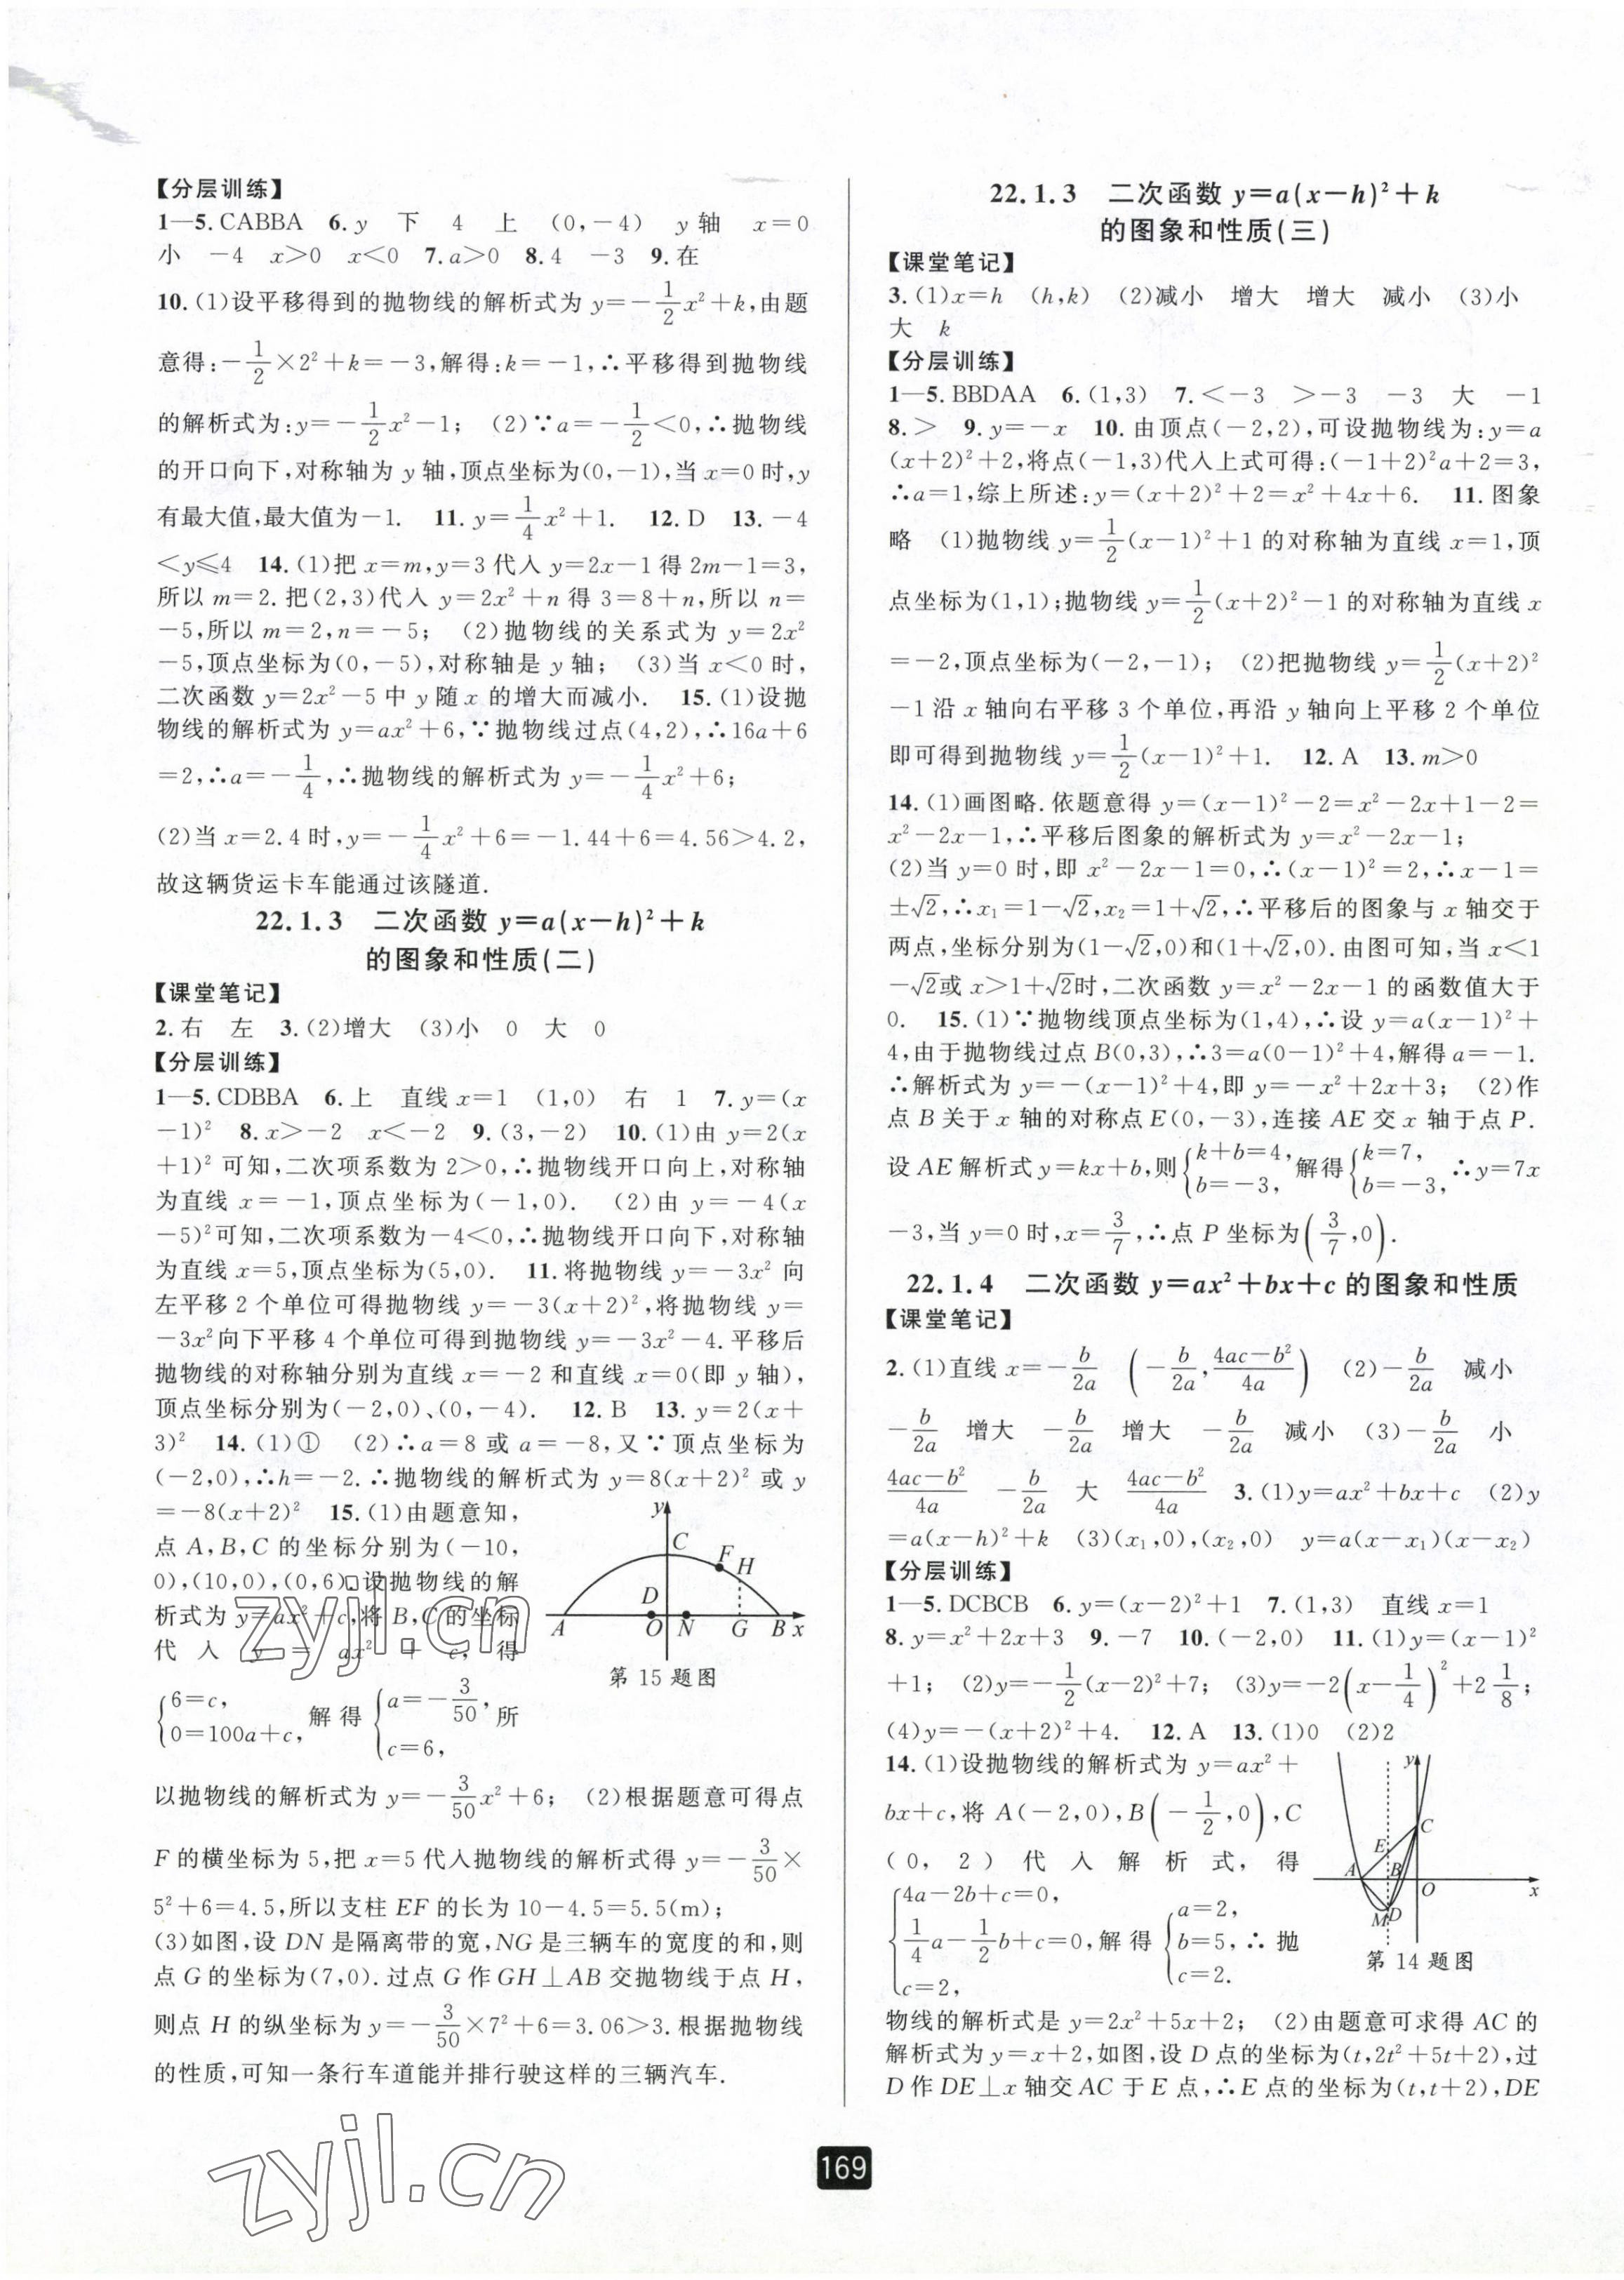 【分层训练】
1—5. CABBA 6. y 下 4 上 (0,-4) y轴 x=0
小 -4 x>0 x<0 7. a>0 8. 4 -3 9. 在
10. (1)设平移得到的抛物线的解析式为 y=-1/2x²+k,由题
意得:-1/2×2²+k=-3,解得:k=-1,∴平移得到抛物线
的解析式为:y=-1/2x²-1; (2)∵a=-1/2<0,∴抛物线
的开口向下,对称轴为 y 轴,顶点坐标为(0,-1),当 x=0 时,y
有最大值,最大值为-1. 11. y=1/4x²+1. 12. D 13. -4
<y≤4 14. (1)把 x=m,y=3 代入 y=2x-1 得 2m-1=3,
所以 m=2. 把(2,3)代入 y=2x²+n 得 3=8+n,所以 n=
-5,所以 m=2,n=-5; (2)抛物线的关系式为 y=2x²
-5,顶点坐标为(0,-5),对称轴是 y 轴; (3)当 x<0 时,
二次函数 y=2x²-5 中 y 随 x 的增大而减小. 15. (1)设抛
物线的解析式为 y=ax²+6,∵抛物线过点(4,2),∴16a+6
=2,∴a=-1/4,∴抛物线的解析式为 y=-1/4x²+6;
(2)当 x=2.4 时,y=-1/4x²+6=-1.44+6=4.56>4.2,
故这辆货运卡车能通过该隧道.
22.1.3 二次函数 y=a(x-h)²+k
的图象和性质(二)
【课堂笔记】
2. 右 左 3. (2)增大 (3)小 0 大 0
【分层训练】
1—5. CDBBA 6. 上 直线 x=1 (1,0) 右 1 7. y=(x
-1)² 8. x>-2 x<-2 9. (3,-2) 10. (1)由 y=2(x
+1)² 可知,二次项系数为 2>0,∴抛物线开口向上,对称轴
为直线 x=-1,顶点坐标为(-1,0). (2)由 y=-4(x
-5)²可知,二次项系数为-4<0,∴抛物线开口向下,对称轴
为直线 x=5,顶点坐标为(5,0). 11. 将抛物线 y=-3x² 向
左平移 2 个单位可得抛物线 y=-3(x+2)²,将抛物线 y=
-3x²向下平移 4 个单位可得到抛物线 y=-3x²-4. 平移后
抛物线的对称轴分别为直线 x=-2 和直线 x=0(即 y 轴),
顶点坐标分别为(-2,0)、(0,-4). 12. B 13. y=2(x+
3)² 14. (1)① (2)∴a=8 或 a=-8,又∵顶点坐标为
(-2,0),∴h=-2. ∴抛物线的解析式为 y=8(x+2)² 或 y
=-8(x+2)² 15. (1)由题意知,
点 A,B,C 的坐标分别为(-10,
0),(10,0),(0,6).设抛物线的解
析式为 y=ax²+c,将 B,C 的坐标
代入 y=ax²+c,得
{6=c, 0=100a+c, 解得 {a=-3/50, c=6, 所
y
C
F
H
D
A O N G B x
第 15 题图
以抛物线的解析式为 y=-3/50x²+6; (2)根据题意可得点
F 的横坐标为 5,把 x=5 代入抛物线的解析式得 y=-3/50×
5²+6=4.5,所以支柱 EF 的长为 10-4.5=5.5(m);
(3)如图,设 DN 是隔离带的宽,NG 是三辆车的宽度的和,则
点 G 的坐标为(7,0). 过点 G 作 GH⊥AB 交抛物线于点 H,
则点 H 的纵坐标为 y=-3/50×7²+6=3.06>3. 根据抛物线
的性质,可知一条行车道能并排行驶这样的三辆汽车.
22.1.3 二次函数 y=a(x-h)²+k
的图象和性质(三)
【课堂笔记】
3. (1)x=h (h,k) (2)减小 增大 增大 减小 (3)小
大 k
【分层训练】
1—5. BBDAA 6. (1,3) 7. <-3 >-3 -3 大 -1
8. > 9. y=-x 10. 由顶点(-2,2),可设抛物线为:y=a
(x+2)²+2,将点(-1,3)代入上式可得:(-1+2)²a+2=3,
∴a=1,综上所述:y=(x+2)²+2=x²+4x+6. 11. 图象
略 (1)抛物线 y=1/2(x-1)²+1 的对称轴为直线 x=1,顶
点坐标为(1,1);抛物线 y=1/2(x+2)²-1 的对称轴为直线 x
=-2,顶点坐标为(-2,-1); (2)把抛物线 y=1/2(x+2)²
-1 沿 x 轴向右平移 3 个单位,再沿 y 轴向上平移 2 个单位
即可得到抛物线 y=1/2(x-1)²+1. 12. A 13. m>0
14. (1)画图略. 依题意得 y=(x-1)²-2=x²-2x+1-2=
x²-2x-1,∴平移后图象的解析式为 y=x²-2x-1;
(2)当 y=0 时,即 x²-2x-1=0,∴(x-1)²=2,∴x-1=
±√2,∴x₁=1-√2,x₂=1+√2,∴平移后的图象与 x 轴交于
两点,坐标分别为(1-√2,0)和(1+√2,0). 由图可知,当 x<1
-√2或 x>1+√2时,二次函数 y=x²-2x-1 的函数值大于
0. 15. (1)∵抛物线顶点坐标为(1,4),∴设 y=a(x-1)²+
4,由于抛物线过点 B(0,3),∴3=a(0-1)²+4,解得 a=-1.
∴解析式为 y=-(x-1)²+4,即 y=-x²+2x+3; (2)作
点 B 关于 x 轴的对称点 E(0,-3),连接 AE 交 x 轴于点 P.
设 AE 解析式 y=kx+b,则{k+b=4, b=-3, 解得{k=7, b=-3, ∴y=7x
-3,当 y=0 时,x=3/7,∴点 P 坐标为(3/7,0).
22.1.4 二次函数 y=ax²+bx+c 的图象和性质
【课堂笔记】
2. (1)直线 x=-b/2a (-b/2a,(4ac-b²)/4a) (2)-b/2a 减小
-b/2a 增大 -b/2a 增大 -b/2a 减小 (3)-b/2a 小
(4ac-b²)/4a -b/2a 大 (4ac-b²)/4a 3. (1)y=ax²+bx+c (2)y
=a(x-h)²+k (3)(x₁,0),(x₂,0) y=a(x-x₁)(x-x₂)
【分层训练】
1—5. DCBCB 6. y=(x-2)²+1 7. (1,3) 直线 x=1
8. y=x²+2x+3 9. -7 10. (-2,0) 11. (1)y=(x-1)²
+1; (2)y=-1/2(x-2)²+7; (3)y=-2(x-1/4)²+2 1/8;
(4)y=-(x+2)²+4. 12. A 13. (1)0 (2)2
14. (1)设抛物线的解析式为 y=ax²+
bx+c,将 A(-2,0),B(-1/2,0),C
(0,2)代入解析式,得
{4a-2b+c=0, 1/4a-1/2b+c=0, c=2, 解得 {a=2, b=5, c=2. ∴抛
y
C
E
A B O x
M D
第 14 题图
物线的解析式是 y=2x²+5x+2; (2)由题意可求得 AC 的
解析式为 y=x+2,如图,设 D 点的坐标为(t,2t²+5t+2),过
D 作 DE⊥x 轴交 AC 于 E 点,∴E 点的坐标为(t,t+2),DE
169
zyjl.cn
zyjl.cn